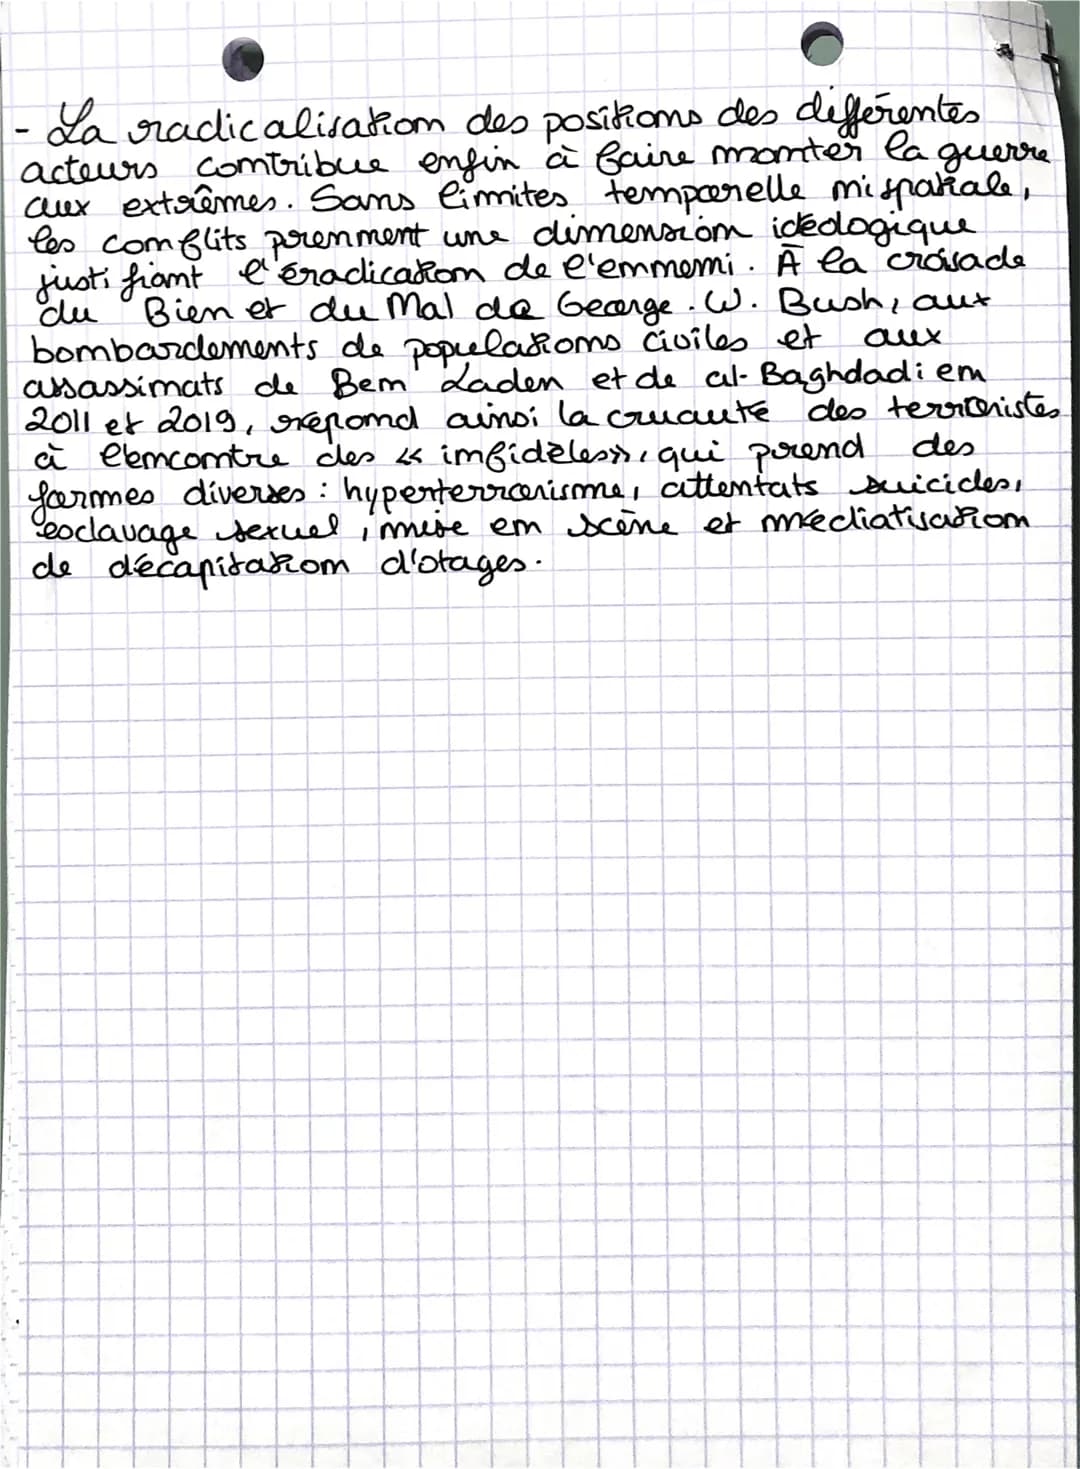 - La radicalisation des positions des différentes
acteurs contribue enfin à faire monter la guerre
aux extrêmes. Sans limites temporelle ni spatiale,
les conflits prennent une dimension idéologique
justifiant l'éradication de l'ennemi. À la croisade
du Bien et du Mal de George. W. Bush, aux
bombardements de populations civiles et aux
assassinats de Ben Laden et de al-Baghdadi en
2011 et 2019, répond ainsi la cruauté des terroristes
à l'encontre des « infidèles», qui prend des
formes diverses : hyperterrorisme, attentats suicides,
esclavage sexuel, mise en scène et médiatisation
de décapitation d'otages.